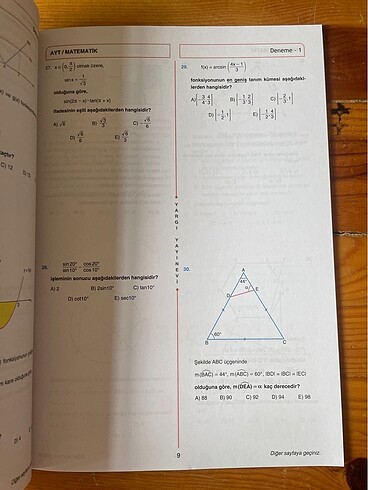 AYT / MATEMATİK
Deneme - 1
27. x ∈ (0, π/2) olmak üzere,
sinx = 1/√3
olduğuna göre,
sin(2π − x)·tan(π + x)
ifadesinin eşiti aşağıdakilerden hangisidir?
A) √6 B) √3/3 C) −√6/6
D) √6/6 E) √6/3
28. sin20°/sin10° cos20°/cos10°
işleminin sonucu aşağıdakilerden hangisidir?
A) 2 B) 2sin10° C) tan10°
D) cot10° E) sec10°
YARGI YAYINEVİ
29. f(x) = arcsin (4x−1/3)
fonksiyonunun en geniş tanım kümesi aşağıdaki-
lerden hangisidir?
D) [−1/2, 1]
30.
A
44°
α
E
D
60°
B
C
Şekilde ABC üçgeninde
m(BAC) = 44°, m(ABC) = 60°, |BD| = |BC| = |EC|
olduğuna göre, m(DEA) = α kaç derecedir?
A) 88 B) 90 C) 92 D) 94 E) 98
9
Diğer sayfaya geçiniz.
C) 12
D) 15
D) 4